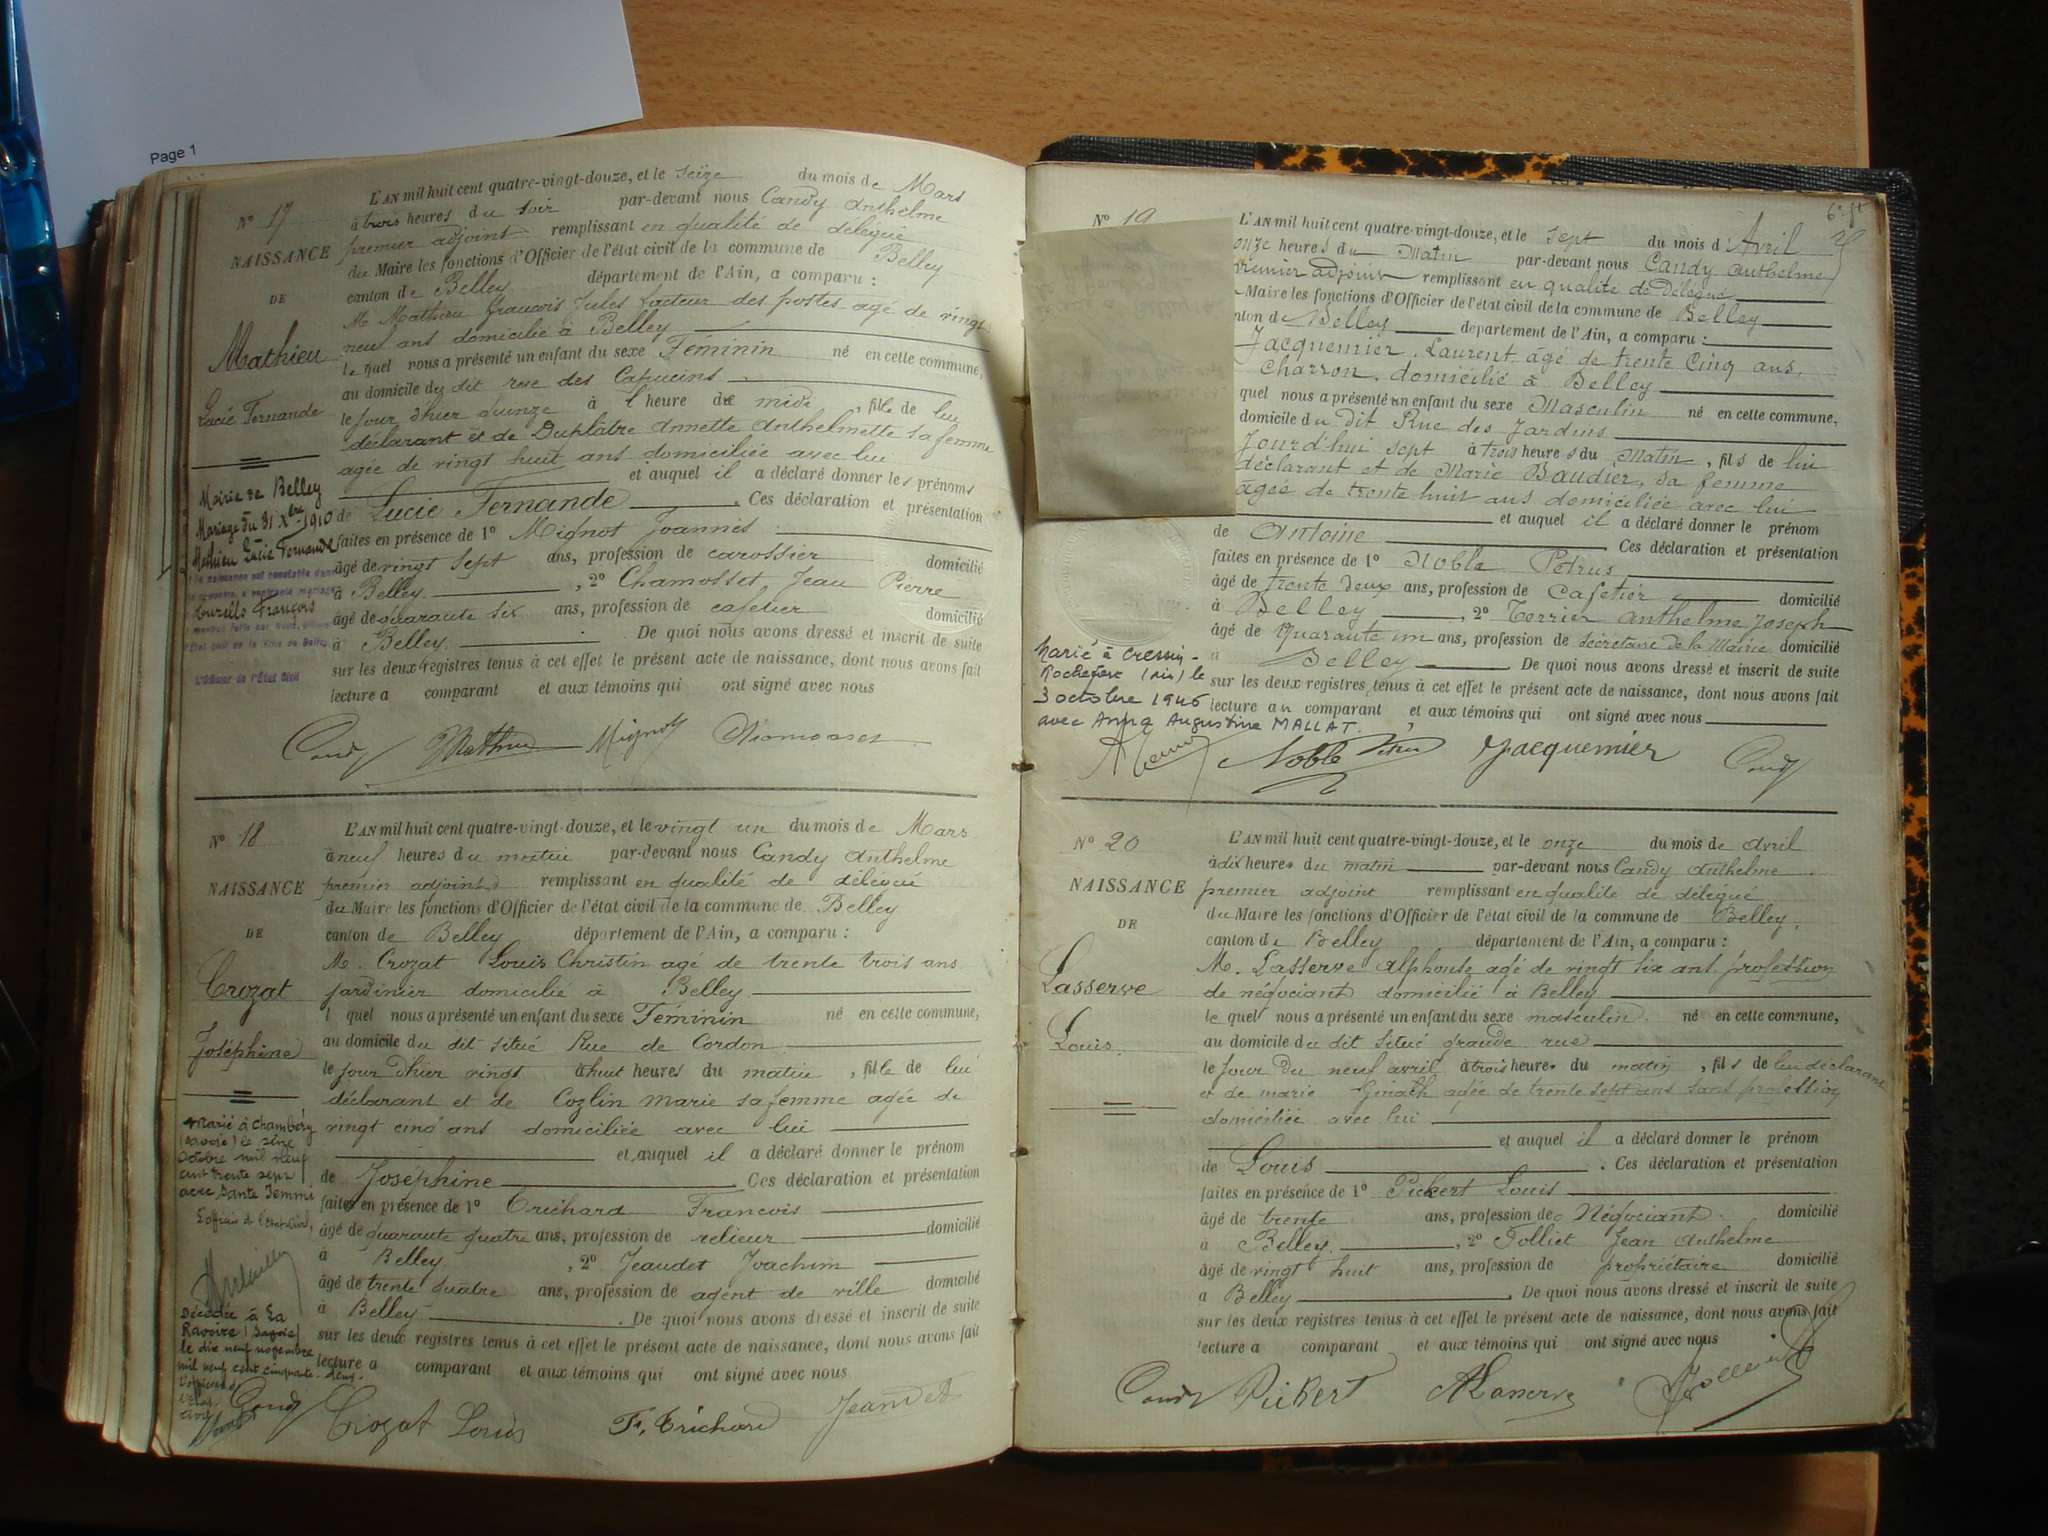 Page 1
N° 17
NAISSANCE
DE
Mathieu
Lucie Fernande
Mairie de Belley
Mariage du 31 Xbre 1910
Mathieu Lucie Fernande
François
L'Officier de l'État Civil
L'AN mil huit cent quatre-vingt-douze, et le seize du mois de Mars
à trois heures du soir par-devant nous Candy Anthelme
premier adjoint remplissant en qualité de délégué
du Maire les fonctions d'Officier de l'état civil de la commune de Belley
canton de Belley département de l'Ain, a comparu :
M. Mathieu François Jules facteur des postes agé de vingt
neuf ans domicilié à Belley
le quel nous a présenté un enfant du sexe Féminin né en cette commune,
au domicile du dit rue des Capucins
le jour d'hier quinze à l heure de midi, fille de lui
déclarant et de Duplâtre Annette Anthelmette sa femme
agée de vingt huit ans domiciliée avec lui
et auquel il a déclaré donner les prénoms
de Lucie Fernande. Ces déclaration et présentation
faites en présence de 1° Mignot Joannès
âgé de vingt sept ans, profession de carossier domicilié
à Belley, 2° Chamosset, Jean Pierre
âgé de quarante six ans, profession de cafetier domicilié
à Belley. De quoi nous avons dressé et inscrit de suite
sur les deux registres tenus à cet effet le présent acte de naissance, dont nous avons fait
lecture a comparant et aux témoins qui ont signé avec nous
Candy Mathieu Mignot Chamosset
N° 18
NAISSANCE
DE
Crozat
Joséphine
Marié à Chambéry
(Savoie) le seize
octobre mil neuf
cent trente sept
avec Sante Jemmi
L'officier de l'état civil,
Décédée à La
Ravoire (Savoie)
le dix neuf novembre
mil neuf cent cinquante-deux.
L'officier de
l'état
civil
L'AN mil huit cent quatre-vingt-douze, et le vingt un du mois de Mars
à neuf heures du matin par-devant nous Candy Anthelme
premier adjoint remplissant en qualité de délégué
du Maire les fonctions d'Officier de l'état civil de la commune de Belley
canton de Belley département de l'Ain, a comparu :
M. Crozat Louis Christin agé de trente trois ans
jardinier domicilié à Belley
l quel nous a présenté un enfant du sexe Féminin né en cette commune,
au domicile du dit situé Rue de Cordon
le jour d'hier vingt à huit heures du matin, fille de lui
déclarant et de Cozlin Marie sa femme agée de
vingt cinq ans domiciliée avec lui
et auquel il a déclaré donner le prénom
de Joséphine. Ces déclaration et présentation
faites en présence de 1° Trichard François
âgé de quarante quatre ans, profession de relieur domicilié
à Belley, 2° Jeaudet Joachim
âgé de trente quatre ans, profession de agent de ville domicilié
à Belley. De quoi nous avons dressé et inscrit de suite
sur les deux registres tenus à cet effet le présent acte de naissance, dont nous avons fait
lecture a comparant et aux témoins qui ont signé avec nous
Candy Crozat Louis F. Trichard Jeaudet
N° 19
Marié à Cressin-
Rochefort (Ain) le
3 octobre 1946
avec Anna Augustine MALLAT.
L'AN mil huit cent quatre-vingt-douze, et le sept du mois d Avril
onze heures du Matin par-devant nous Candy Anthelme
premier adjoint remplissant en qualité de Délégué
Maire les fonctions d'Officier de l'état civil de la commune de Belley
nton de Belley département de l'Ain, a comparu :
Jacquemier, Laurent, âgé de trente cinq ans,
Charron, domicilié à Belley
quel nous a présenté un enfant du sexe Masculin né en cette commune,
domicile du dit Rue des Jardins
jourd'hui sept à trois heures du Matin, fils de lui
déclarant et de Marie Baudier, sa femme
âgée de trente huit ans domiciliée avec lui
et auquel il a déclaré donner le prénom
de Antoine Ces déclaration et présentation
faites en présence de 1° Noble Pétrus
âgé de trente deux ans, profession de Cafetier domicilié
à Belley, 2° Terrier Anthelme Joseph
âgé de Quarante un ans, profession de secrétaire de la Mairie domicilié
à Belley. De quoi nous avons dressé et inscrit de suite
sur les deux registres tenus à cet effet le présent acte de naissance, dont nous avons fait
lecture au comparant et aux témoins qui ont signé avec nous
Noble Petrus Jacquemier Candy
N° 20
NAISSANCE
DE
Lasserve
Louis
L'AN mil huit cent quatre-vingt-douze, et le onze du mois de avril
à dix heures du matin par-devant nous Candy Anthelme
premier adjoint remplissant en qualité de délégué
du Maire les fonctions d'Officier de l'état civil de la commune de Belley,
canton de Belley département de l'Ain, a comparu :
M. Lasserve Alphonse agé de vingt six ans profession
de négociant domicilié à Belley
le quel nous a présenté un enfant du sexe masculin né en cette commune,
au domicile du dit situé grande rue
le jour du neuf avril à trois heures du matin, fils de lui déclarant
et de marie agée de trente sept ans sans profession
domiciliée avec lui
et auquel il a déclaré donner le prénom
de Louis. Ces déclaration et présentation
faites en présence de 1° Pickert Louis
âgé de trente ans, profession de Négociant domicilié
à Belley, 2° Tolliet Jean Anthelme
âgé de vingt huit ans, profession de propriétaire domicilié
a Belley. De quoi nous avons dressé et inscrit de suite
sur les deux registres tenus à cet effet le présent acte de naissance, dont nous avons fait
lecture a comparant et aux témoins qui ont signé avec nous
Candy Pickert ALasserve